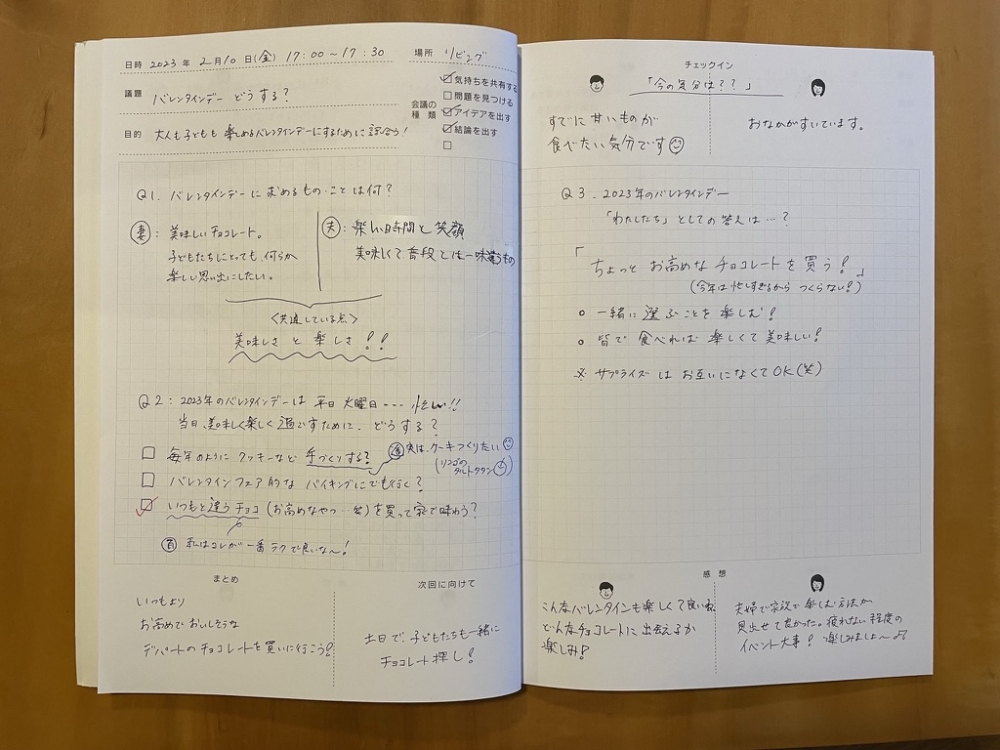 日時 2023 年 2 月 10 日(金) 17:00〜17:30
場所 リビング
議題 バレンタインデー どうする?
目的 大人も子どもも 楽しめるバレンタインデーにするために 話合う!
会議の種類
☑気持ちを共有する
□問題を見つける
☑アイデアを出す
☑結論を出す
□
Q1. バレンタインデーに求めるもの・ことは何?
妻: 美味しいチョコレート。
子どもたちにとっても、何らか
楽しい思い出にしたい。
夫: 楽しい時間と笑顔
美味しくて普段とは一味違うもの
〈共通している点〉
美味しさ と 楽しさ!!
Q2: 2023年のバレンタインデーは 平日 火曜日--- 忙しい!!
当日、美味しく楽しく過ごすために、どうする?
□ 毎年のように クッキーなど 手づくりする?
実は、ケーキつくりたい
(リンゴのタルトタタン)
□ バレンタインフェア的な バイキングにでも行く?
☑ いつもと違うチョコ (お高めなやつ…笑) を買って 家で味わう?
私はコレが一番ラクで良いな〜!
まとめ
いつもより
お高めでおいしそうな
デパートのチョコレートを買いに行こう!
次回に向けて
土日で、子どもたちも一緒に
チョコレート探し!
チェックイン
「今の気分は??」
すでに甘いものが
食べたい気分です
おなかがすいています。
Q3. 2023年のバレンタインデー
「わたしたち」としての答えは…?
「ちょっと お高めな チョコレートを買う!」
(今年は忙しすぎるから つくらない!)
○ 一緒に 選ぶことを 楽しむ!
○ 皆で 食べれば 楽しくて美味しい!
※ サプライズは お互いになくてOK(笑)
感想
こんなバレンタインも楽しくて良いね
どんなチョコレートに出会えるか
楽しみ!
夫婦で家族で楽しむ方法が
見出せて良かった。疲れない程度の
イベント大事! 楽しみましょ〜♪